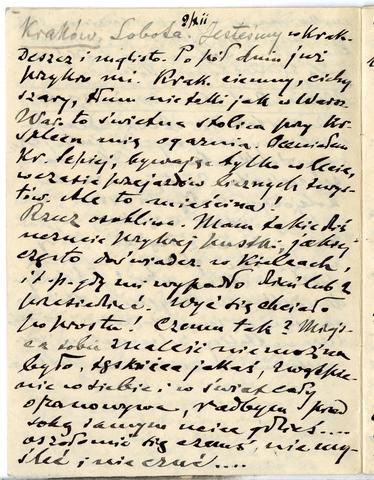 9/XII
Kraków. Sobota. Jesteśmy w Krak.
Deszcz i mglisto. Po pół dniu już
przykro mi. Krak. ciemny, cichy
szary, tłum nie taki jak w Warsz.
War. to świetna stolica przy Kr.
Spleen mię ogarnia. Oceniałem
Kr. lepiej, bywając tylko w lecie,
w czasie przejazdów licznych turys-
tów. Ale to mieścina!
Rzecz osobliwa. Mam takie dziś
uczucie przykrej pustki, jakiej
często doświadcz. w Kielcach,
i t. p. gdy mi wypadło dzień lub 2
przesiedzieć. Wyć się chciało
po prostu! Czemu tak? Miejs-
ca sobie znaleść nie można
było, tęsknica jakaś, zwątpie-
nie w siebie i w świat cały
opanowywa, radbym przed
sobą samym uciec gdzieś....
oszołomić się czemś, nie my-
śleć i nie czuć....